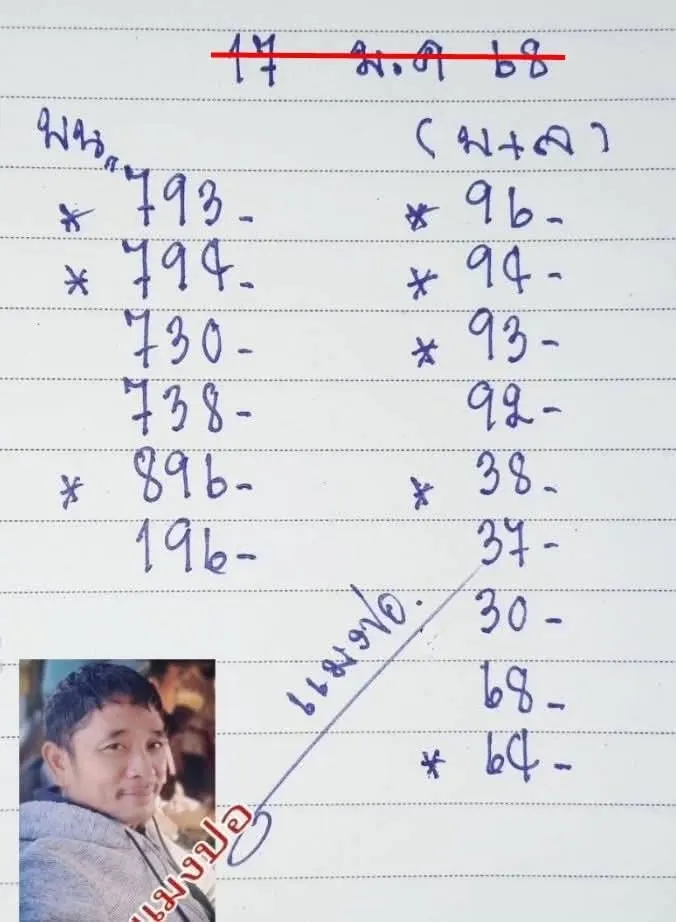 17 ม.ค 68
บน. (บ+ล)
* 793- * 96-
* 794- * 94-
730- * 93-
738- 92-
* 896- * 38-
196- 37-
30-
68-
* 64-
แมงปอ.
แมงปอ